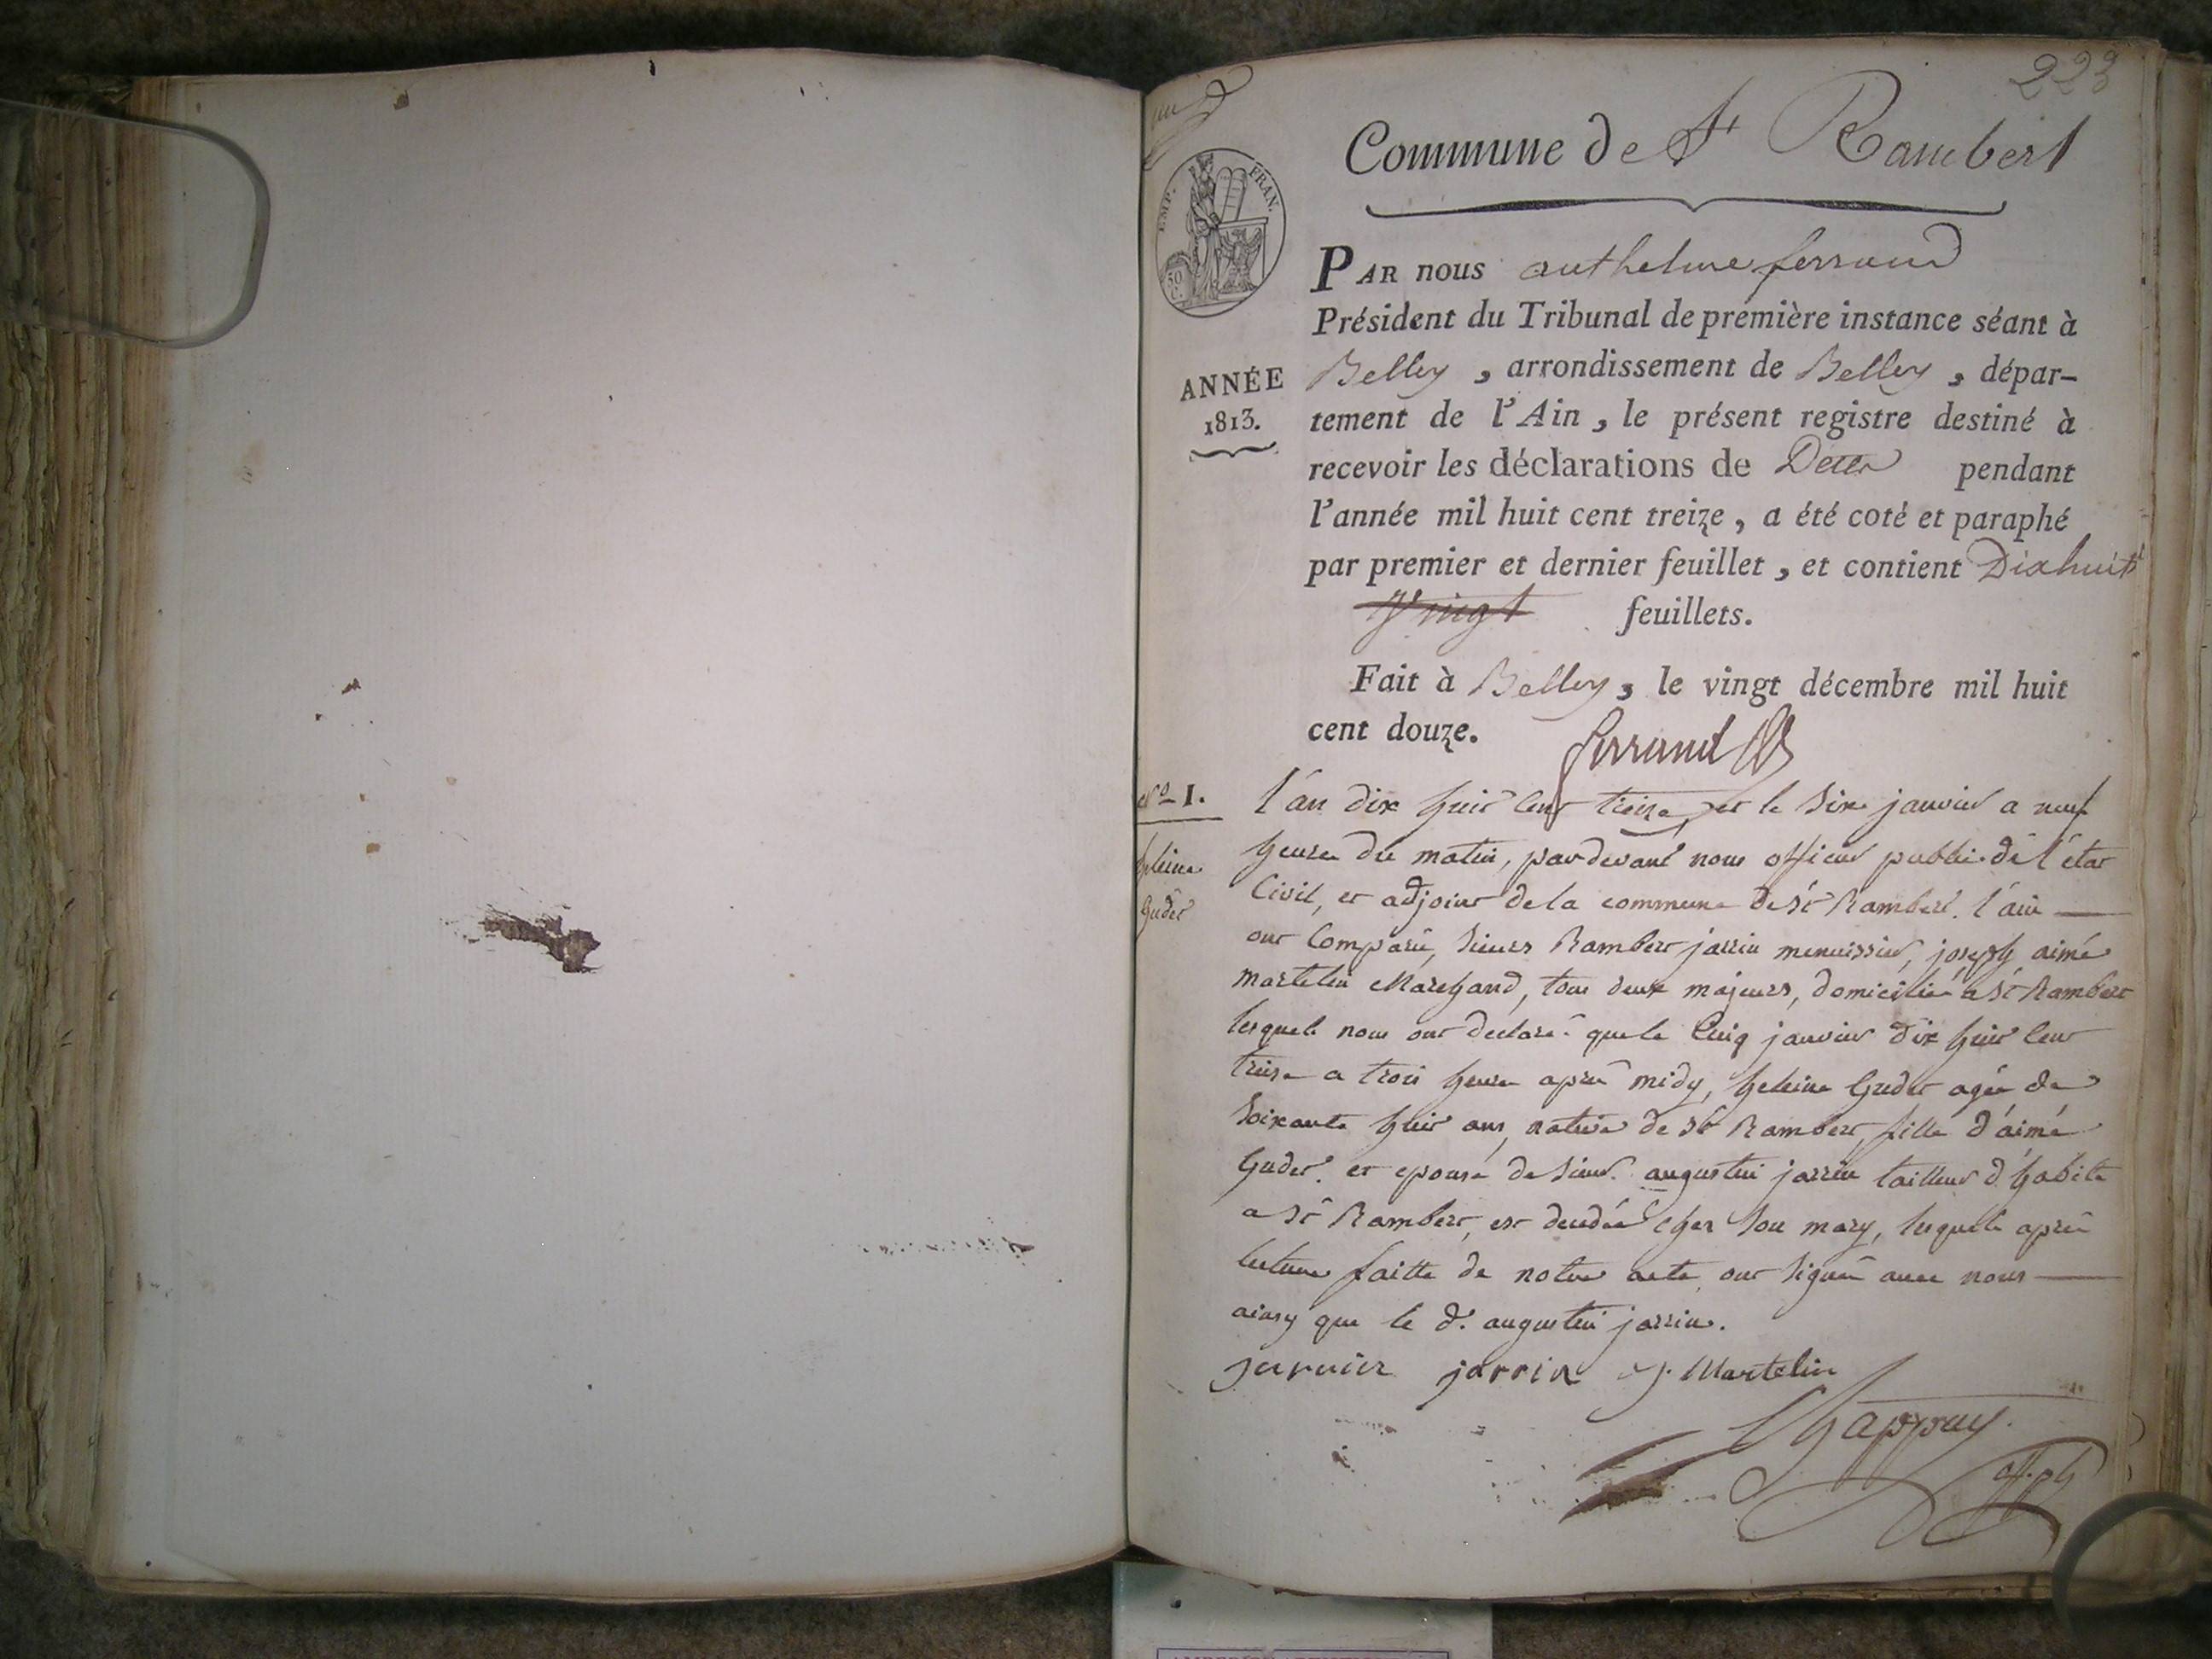 223
Commune de St Rambert
EMP. FRAN.
50
PAR nous anthelme ferrand
Président du Tribunal de première instance séant à
Belley, arrondissement de Belley, dépar-
tement de l'Ain, le présent registre destiné à
recevoir les déclarations de Décès pendant
l'année mil huit cent treize, a été coté et paraphé
par premier et dernier feuillet, et contient Dixhuit
Vingt feuillets.
ANNÉE
1813.
Fait à Belley, le vingt décembre mil huit
cent douze.
ferrand
No 1.
heleine
Guder
l'an dix huit cent treize, et le six janvier a neuf
heures du matin, pardevant nous officier public de l'état
Civil, et adjoint de la commune de St Rambert. l'ain
ont Comparu, sieurs Rambert jarrin menuissier, joseph aimé
martelin Marchand, tous deux majeurs, domiciliés a St Rambert
lesquels nous ont declaré que le Cinq janvier dix huit Cent
treise a trois heures après midy, heleine Guder agée de
soixante huit ans, native de St Rambert, fille d'aimé
Guder. et epouse de sieur augustin jarrin tailleur d'habits
a St Rambert, est decedée chez son mary, lesquels après
lecture faitte de notre acte, ont signés avec nous
ainsy que le d. augustin jarrin.
jarrin J. Martelin
Chappuy